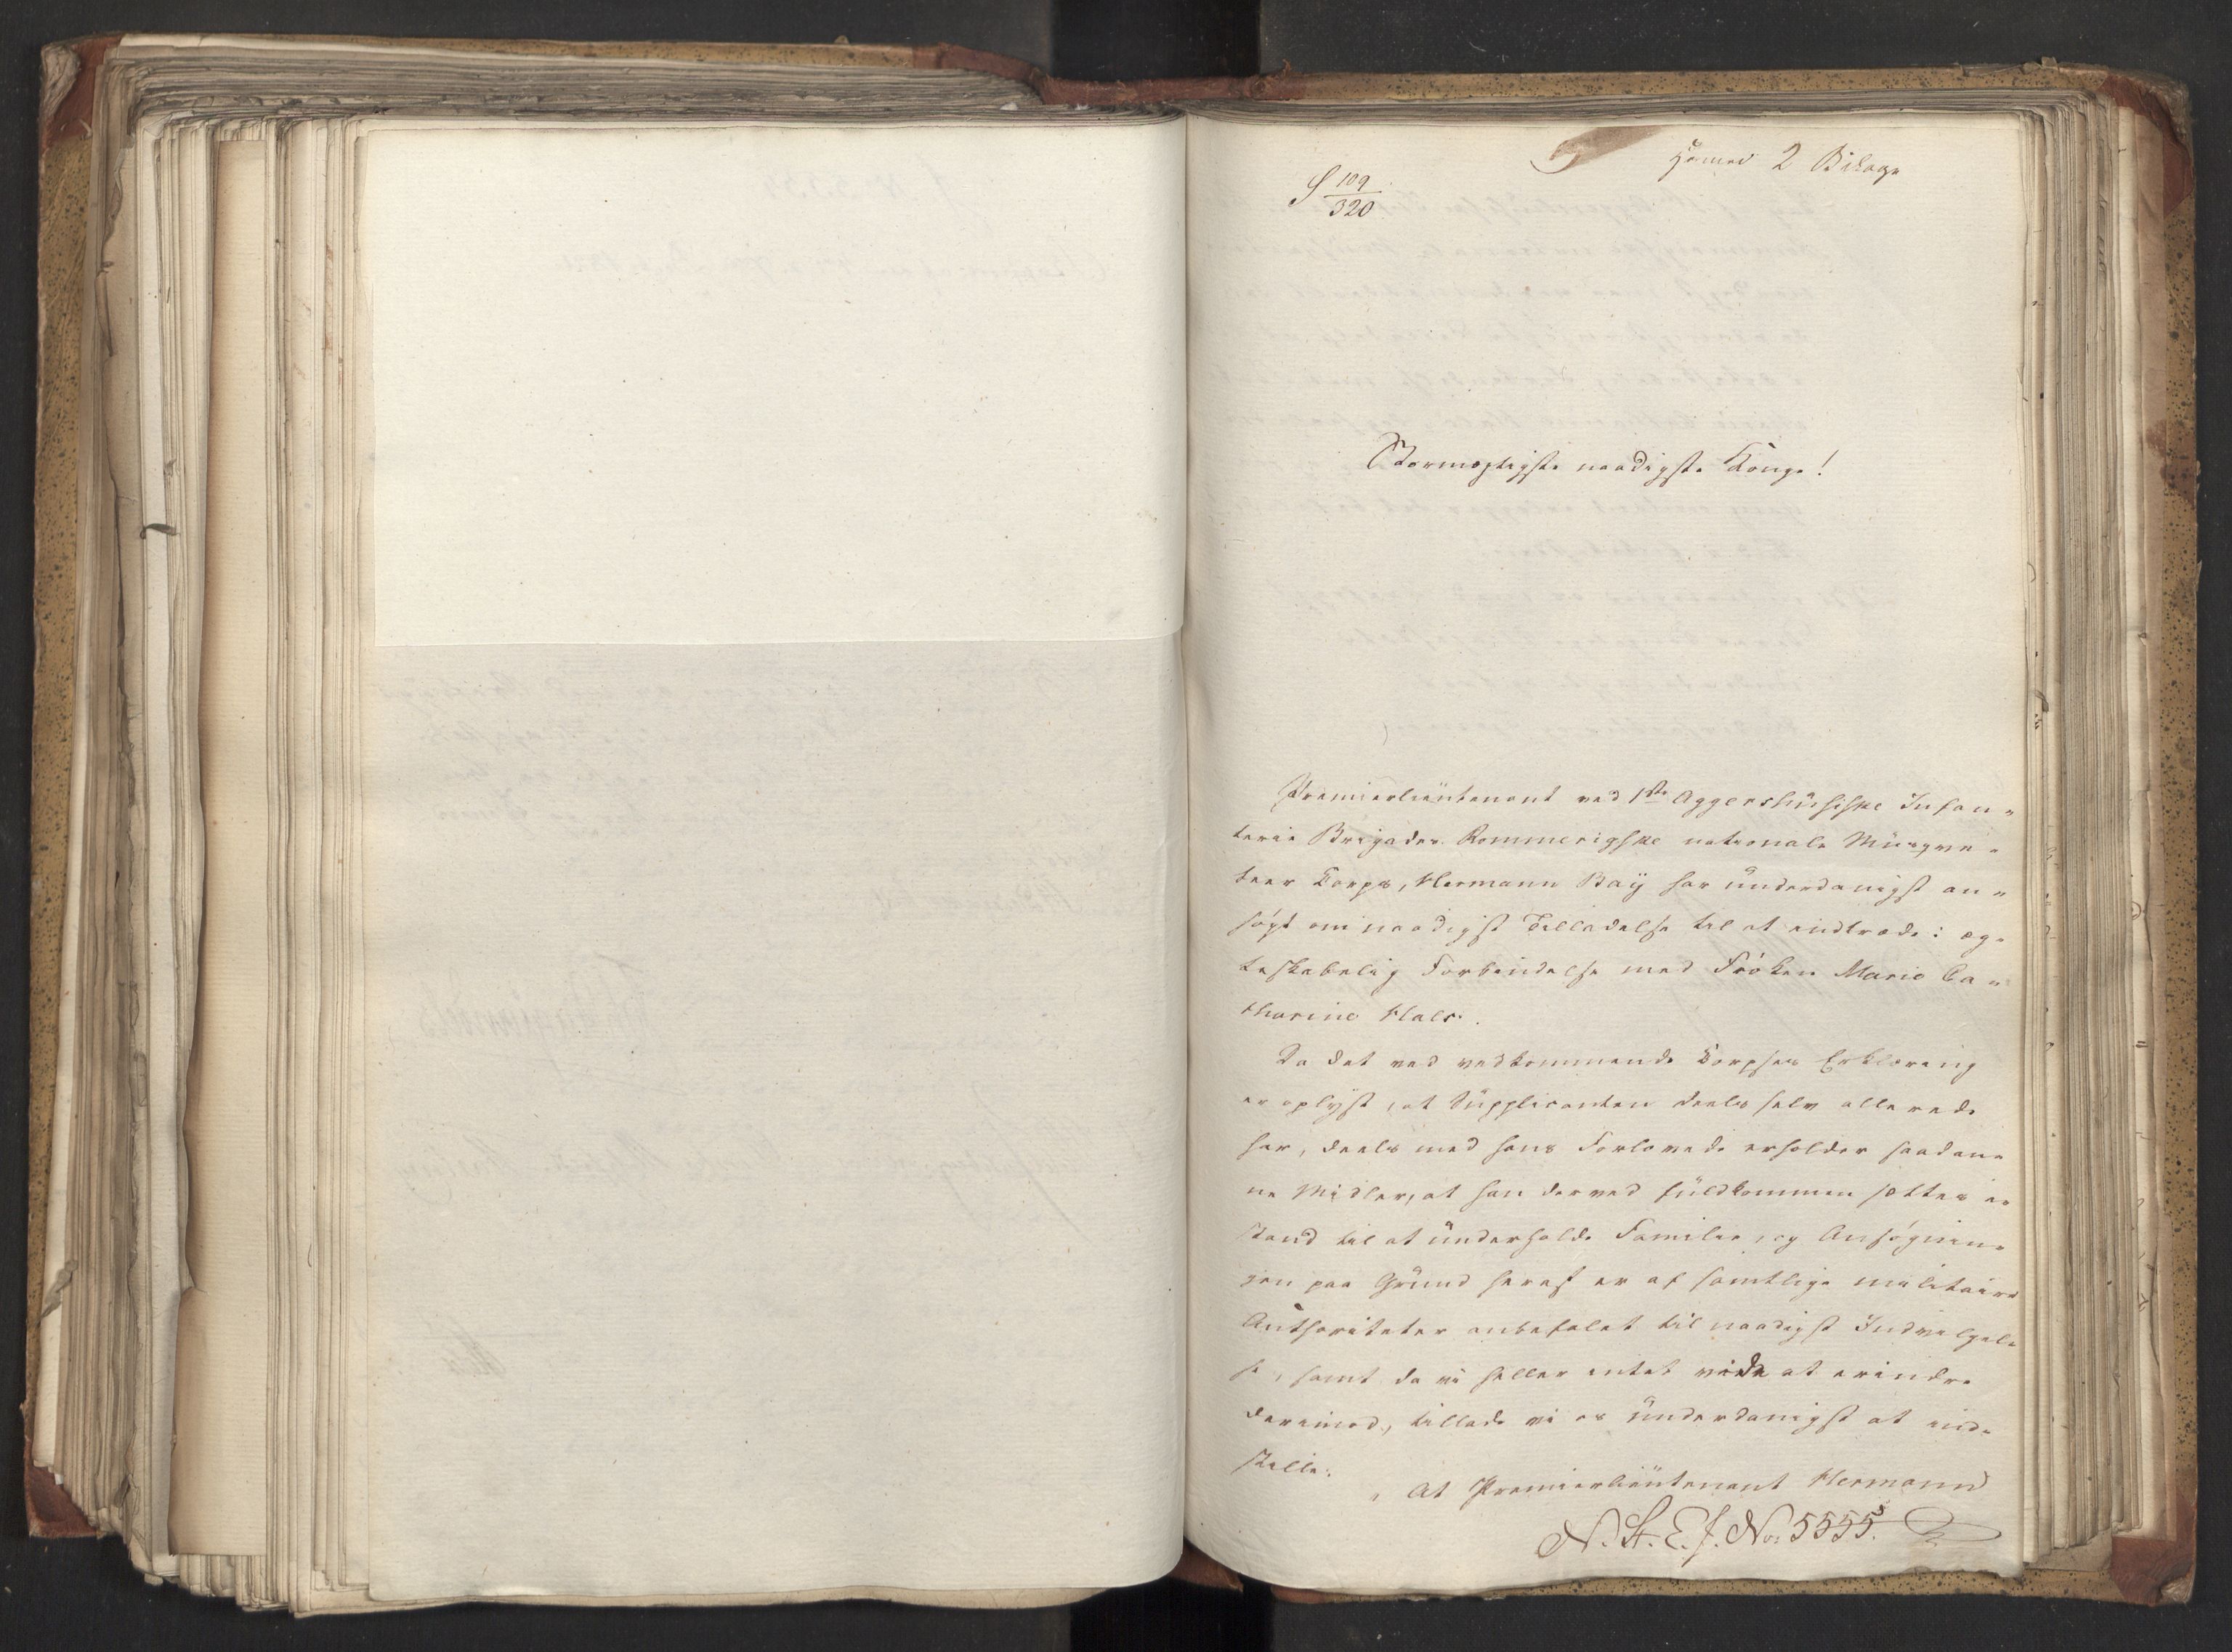 S 109/320
Hermed 2 Bilage
Stormægtigste naadigste Konge!
Premierlieutenant ved 1ste Aggershusiske Infan-
terie Brigades Rommerigske nationale Musqve-
teer Corps, Hermann Baÿ har underdanigst an-
søgt om naadigst Tilladelse til at indtræde i æg-
teskabelig Forbindelse med Frøken Marie Ca-
tharine Hals.
Da det ved vedkommende Corpses Erklæring
er oplyst, at Supplicanten deels selv allerede
har, deels med hans Forlovede erholder saadan-
ne Midler, at han derved fuldkommen sættes i
Stand til at underholde Familie, og Ansøgnin-
gen paa Grund heraf er af samtlige militaire
Authoriteter anbefalet til naadigst Indvilgel-
se, samt da vi heller intet vide at erindre
derimod, tillade vi os underdanigst at ind-
stille:
„At Premierlieutenant Hermann
N. St. E. J. No. 5555.